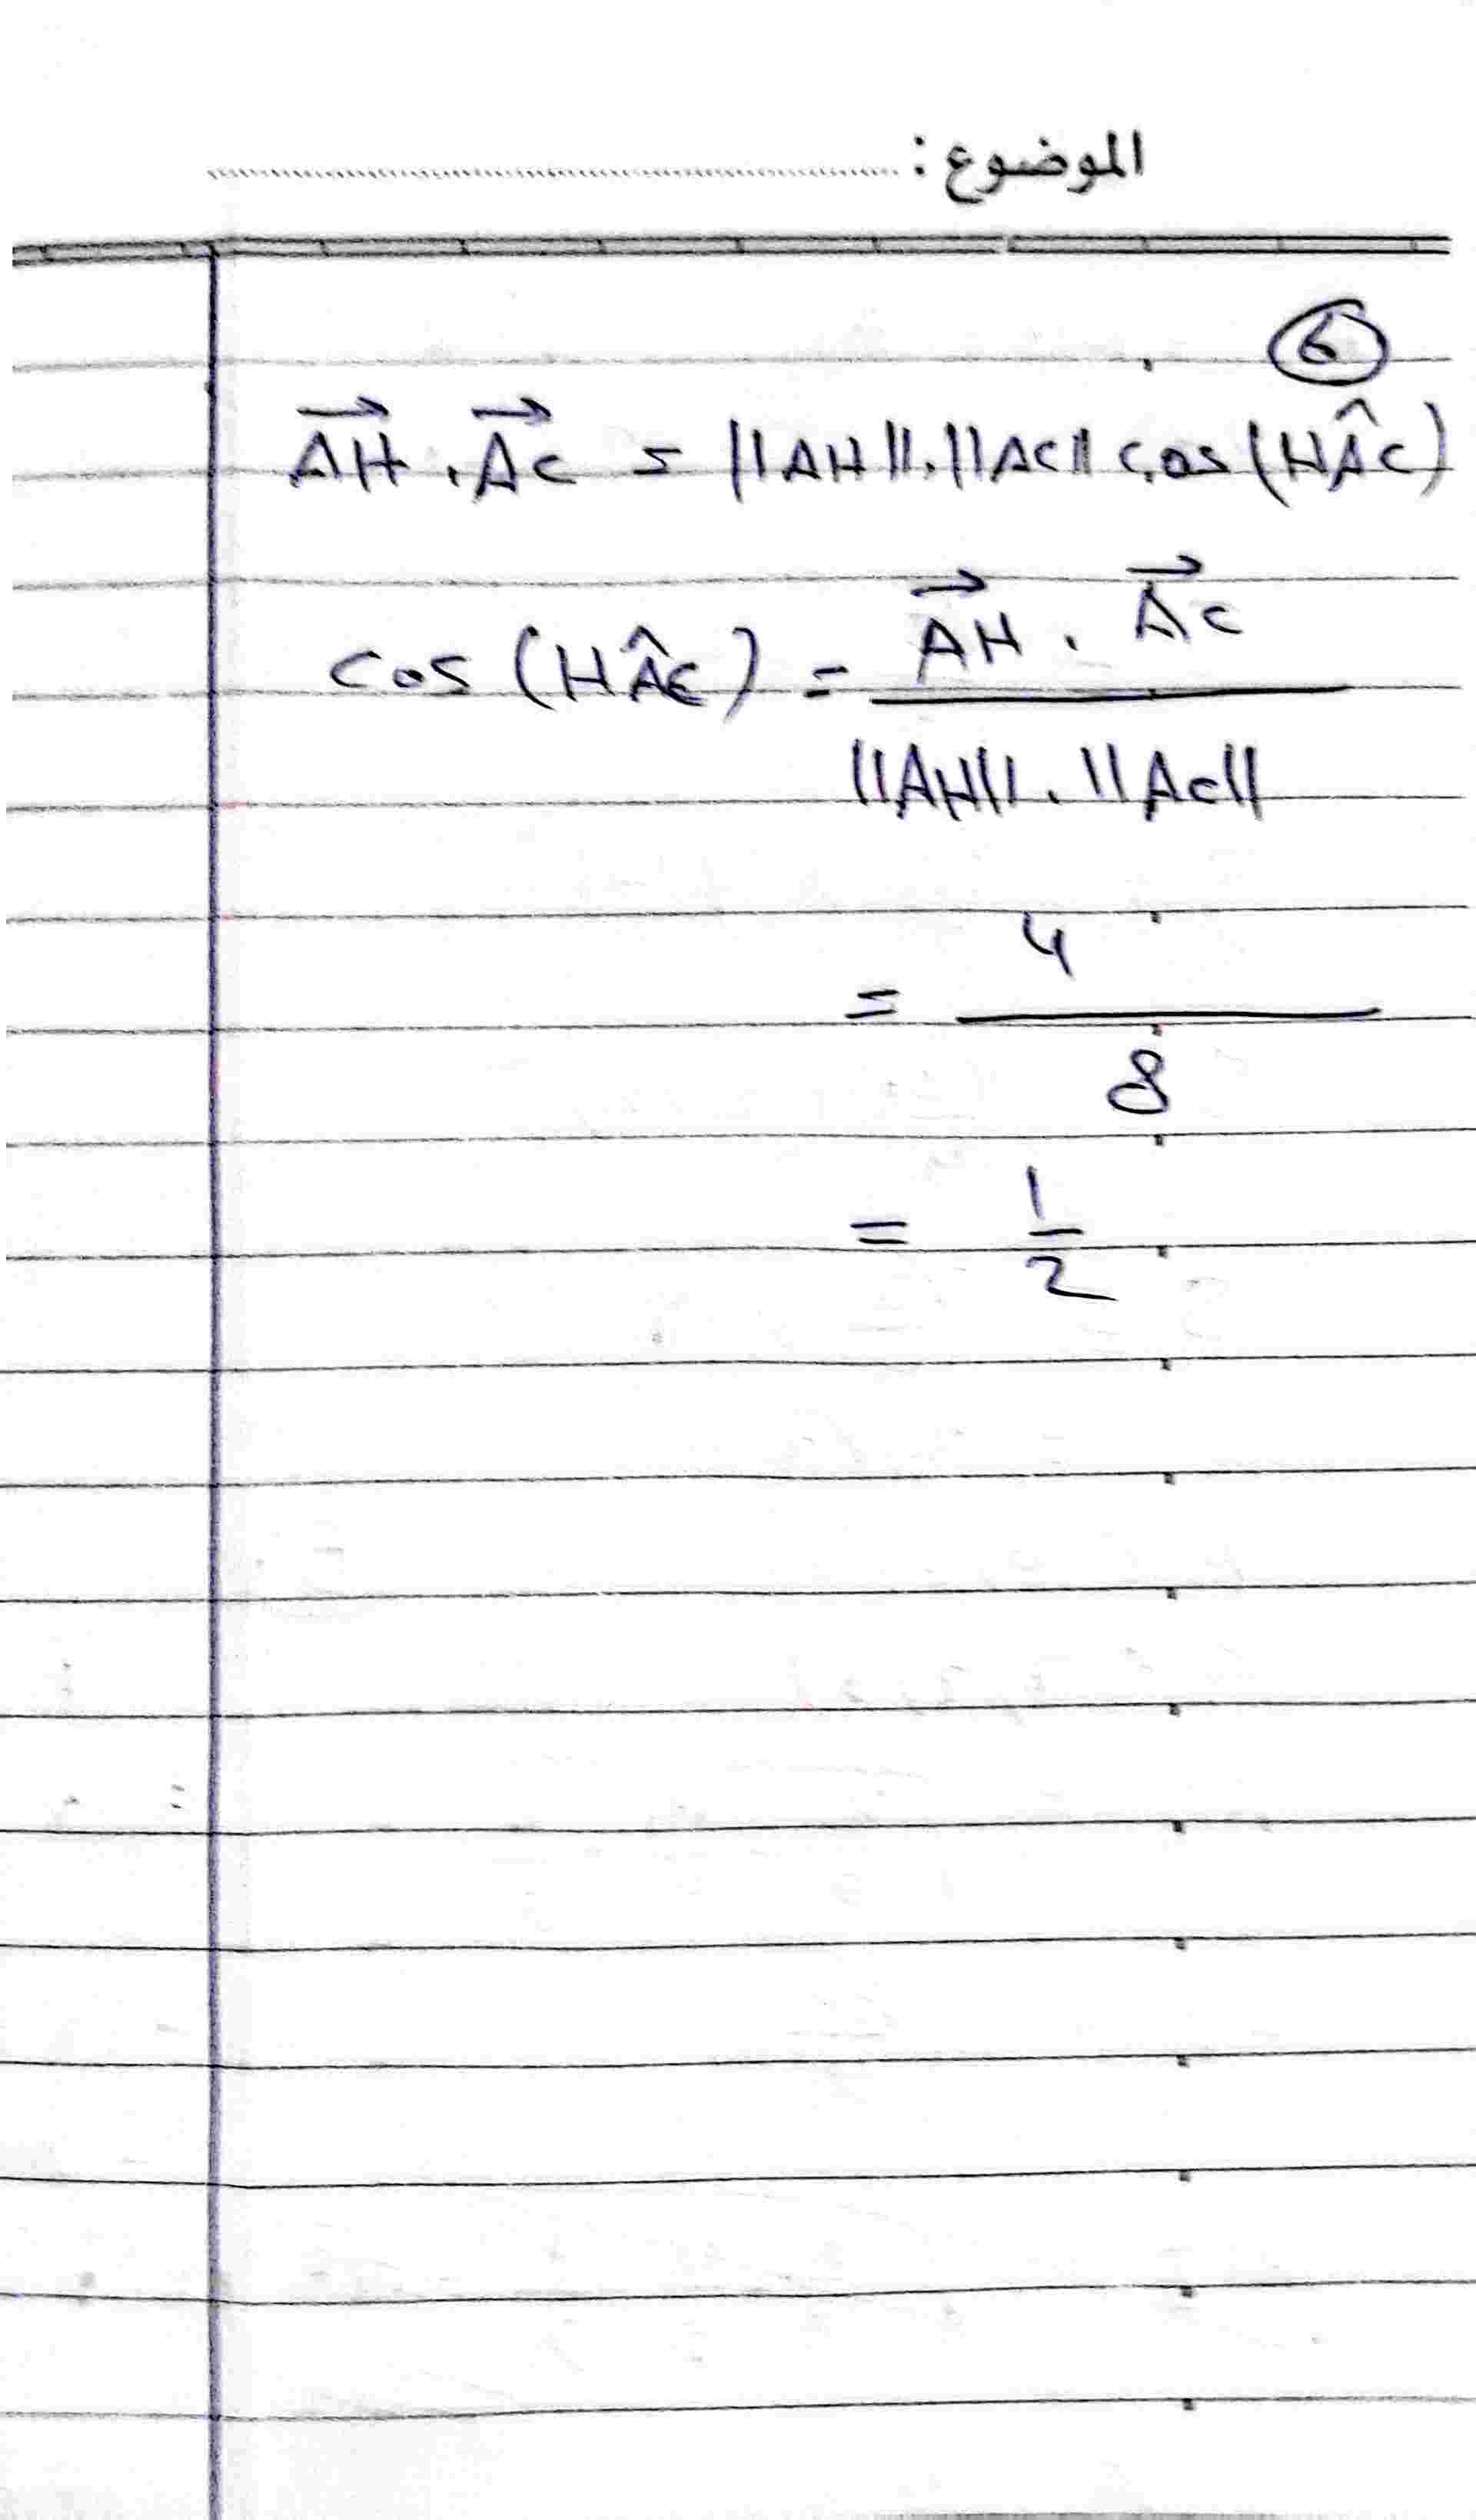 الموضوع :
6
AH . AC = ||AH||.||AC|| cos(HÂC)
cos (HÂC) = AH . AC
||AH||. ||AC||
= 4
8
= 1
2